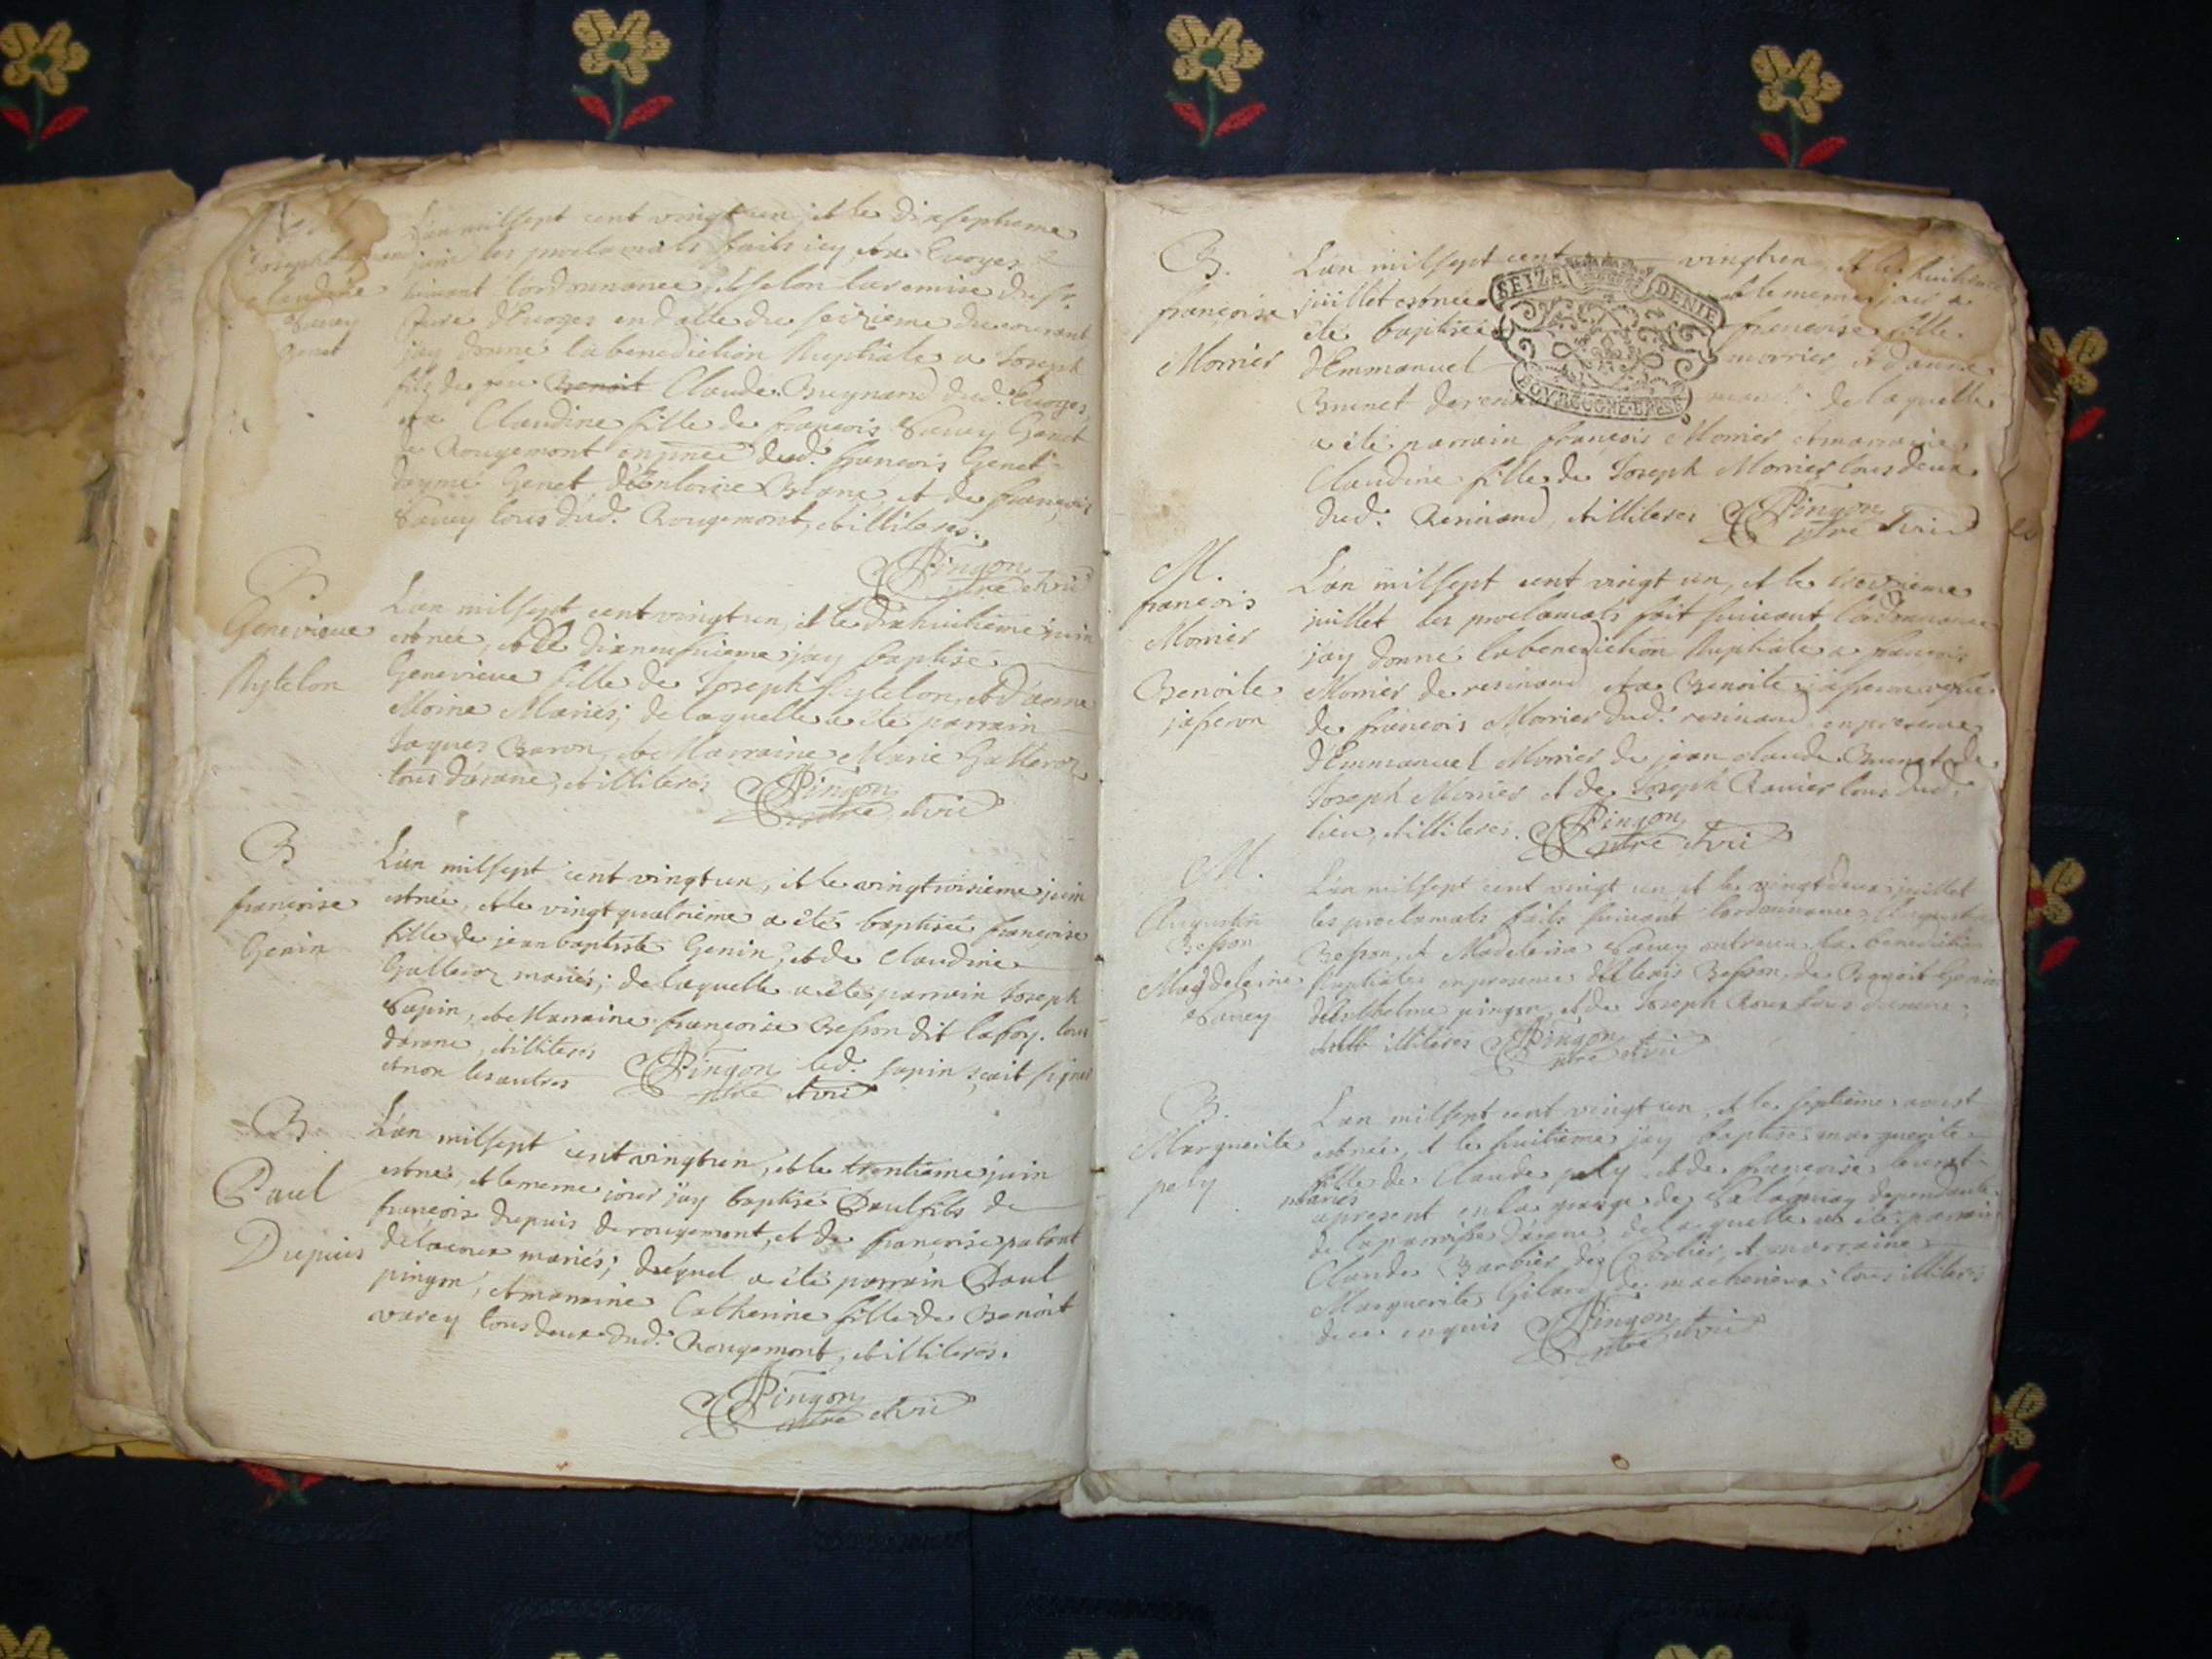 Joseph
Claudine
Savey
Genet
L'an milsept cent vingt un, et le dixseptieme
juin les proclamats faits icy, et a Evoges
suivant l'ordonnance, et selon la remise du Sr.
Cure d'Evoges en datte du seizieme du courant
jay donné la benediction Nuptiale a Joseph
fils de feu Benoit Claude Buynand dud. Evoges,
et a Claudine fille de françois Savey Genet
de Rougemont en pnce dud. françois Genet
Genet Blanc, et de françois
Savey tous dud. Rougemont, et illiteres.
Pingon
ptre et vic
B
Genevieve
Rytelon
L'an milsept cent vingt un, et le dixhuitieme juin
est née, et le dixneufvieme jay baptisé
Genevieve fille de Joseph Rytelon, et d'anne
Moine Mariés; de laquelle a été parrain
Jaques Baron, et Marraine Marie Galleroz
tous d'arane, et illiterés Pingon
ptre et vic
B
françoise
Genin
L'an milsept cent vingt un, et le vingt troisieme juin
est née, et le vingt quatrieme a été baptisée françoise
fille de jean baptiste Genin, et de Claudine
Galleroz mariés; de laquelle a été parrain Joseph
Sapin, et Marraine françoise Besson dit lafoy. tous
d'arane, et illiterés Pingon led. sapin sçait signer
et non les autres ptre et vic
B
Paul
Dupuis
L'an milsept cent vingt un, et le trentieme juin
est né, et le meme jour jay baptisé Paul fils de
françois dupuis de rougemont, et de françoise
mariés; duquel a été parrain Paul
pingon, et marraine Catherine fille de Benoit
varey tous deux dud. Rougemont, et illiterés.
Pingon
ptre et vic
B.
françoise
Morrier
L'an milsept cent vingt un, et le huitieme
juillet est née et le meme jour a
été baptisée françoise fille
d'Emmanuel morrier, et d'anne
Brunet de de laquelle
a été parrain françois Morrier et marraine
Claudine fille de Joseph Morrier tous deux
dud. Resinand, et illiteres Pingon
ptre et vic
SEIZE DENIE
BOURGOGNE BRESS
M.
françois
Morrier
Benoite
jasseron
L'an milsept cent vingt un, et le
juillet les proclamats fait suivant l'ordonnance
jay donné la benediction Nuptiale a françois
Morrier de resinand et a Benoite jasseron
de françois Morrier dud. resinand en presence
d'Emmanuel Morrier de jean claude Brunet de
Joseph Morrier et de Joseph Ravier tous dud.
lieu, et illiteres. Pingon
ptre et vic
M.
Augustin
Besson
Magdeleine
Savey
L'an milsept cent vingt un, et le vingt deux juillet
les proclamats faits suivant l'ordonnance Augustin
Besson, et Madeleine Savey ont receu la benediction
Nuptiale en presence d'Alexis Besson, de Benoit Genin
d'Anthelme pingon, et de Joseph Roux tous d'arane
illiteres Pingon
ptre et vic
B.
Marguerite
pely
L'an milsept cent vingt un, et le septieme aoust
est née, et le huitieme jay baptisé marguerite
fille de Claude pely et de françoise
mariés
apresent en la grange de dependante
de la paroisse d'arane, de laquelle a été parrain
Claude Barbier de Corlier, et marraine
Marguerite Gilard de tous illiterés
de ce enquis Pingon
ptre et vic